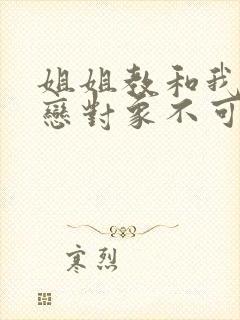 姐姐教和我
戀對象不可
寒烈